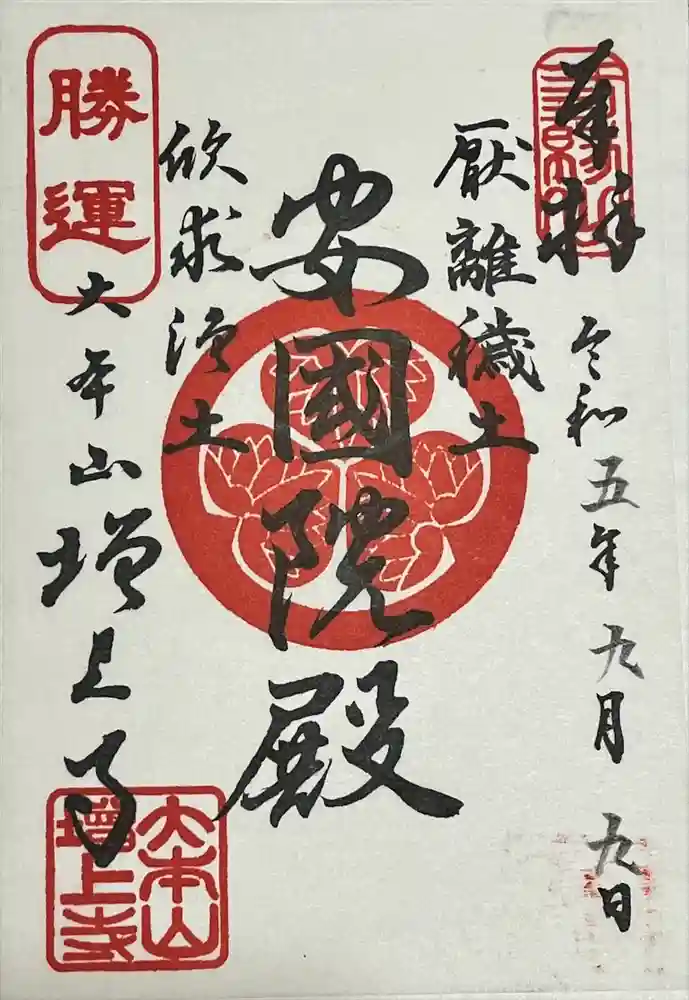 奉拝
令和五年九月九日
厭離穢土
安國院殿
欣求浄土
勝運
大本山増上寺
大本山
増上寺